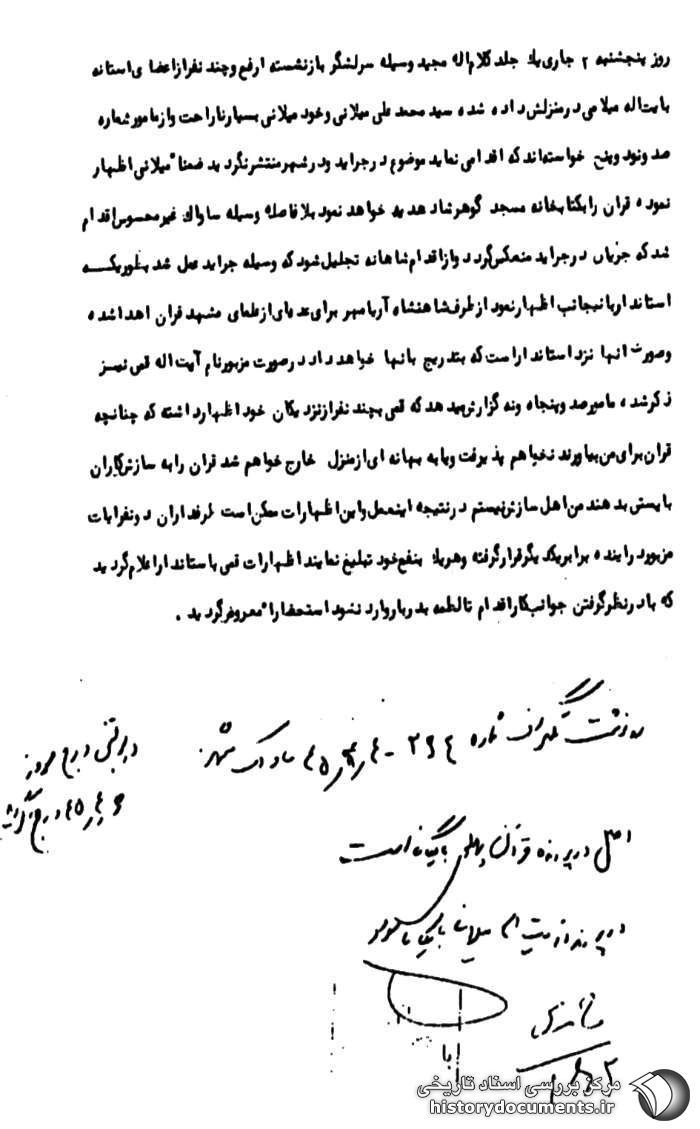 روز پنجشنبه ۲ جاری یك جلد كلام اله مجید وسیله سرلشگر بازنشسته ارفع و چند نفر از اعضا ی استانه
بایت اله میلا می در منزلش داد ه شد ه سید محمد علی میلانی وخود میلانی بسیار ناراحت واز مامور شماره
صد ونود وپنج خواسته اند كه اقدامی نماید موضوع در جراید ودر شهر منتشر نگرد ید ضمنا" میلانی اظهار
نمود ه قران را بكتابخانه مسجد گوهر شاد هدیه خواهد نمود بلا فاصله وسیله ساواك غیر محسوس اقدام
شد كه جریان در جراید منعكس گرد د واز اقدام شاهانه تجلیل شود كه وسیله جراید عمل شد بطوریكـــه
استاندار باینجانب اظهار نمود از طرف شاهنشاه آریامهر برای عد ه ای از علمای مشهد قران اهدا شد ه
وصورت انها نزد استاندار است كه بتدریج بانها خواهد داد در صورت مزبور نام آیت اله قمی نیــز
ذكر شد ه مامور صد وپنجاه ونه گزارش میدهد كه قمی بچند نفر از نزد یكان خود اظهار داشته كه چنانچه
قران برای من بیاورند نخواهم پذ یرفت ویا به بهانه ای از منزل خارج خواهم شد قران را به سازش كاران
بایستی بد هند من اهل سازش نیستم در نتیجه این عمل واین اظهارات ممكن است طرفداران د ونفر ایات
مزبور د راینده برابر یكد یگر قرار گرفته وهر یك بنفع خود تبلیغ نمایند اظهارات قمی باستاندار اعلام گرد ید
كه با در نظر گرفتن جوانب كار اقدام تا لطمه بدربار وارد نشود استحضارا" معروض گرد ید .
رونوشت تلگراف شماره ۲۶۴ - ۴۵/۴/۴ ساواك مشهد
اصل در پرونده قرآن پهلوی بایگانی است
در پرونده آیت اله میلانی بایگانی شود
مركز بررسی اسناد تاریخی
historydocuments.ir